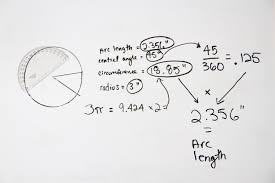 arc length = 2.356"
central angle = 45°
circumference = 18.85"
radius = 3"
3π = 9.424 x 2 =
45/360 = .125
x
2.356"
=
Arc
length